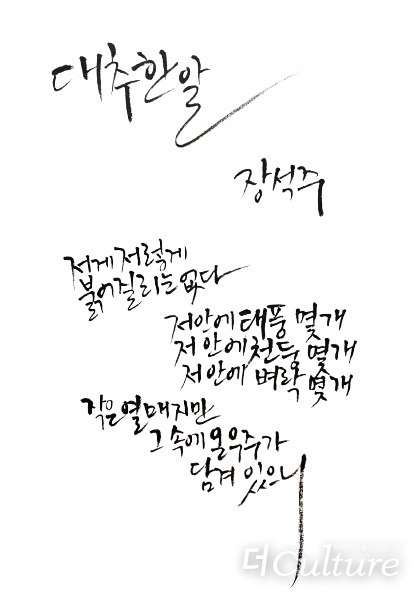 대추한알
장석주
저게 저렇게
붉어질리는 없다
저 안에 태풍 몇개
저 안에 천둥 몇개
저 안에 벼락 몇개
작은 열매지만
그 속에 온 우주가
담겨 있으니
더Culture